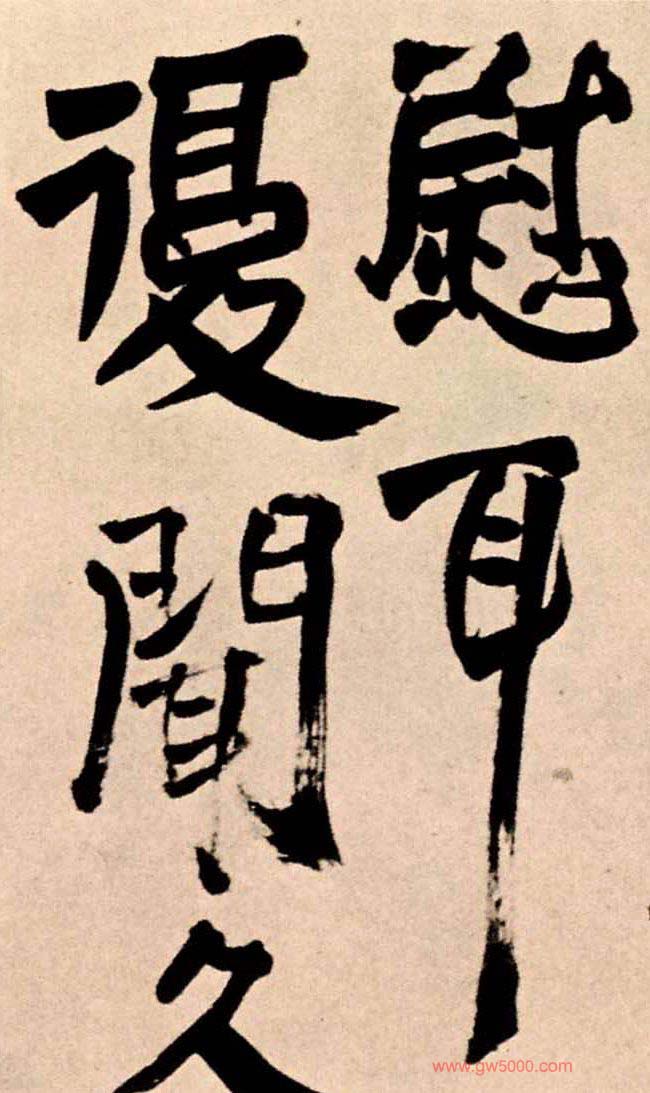 慰耳
復聞久
www.gw5000.com